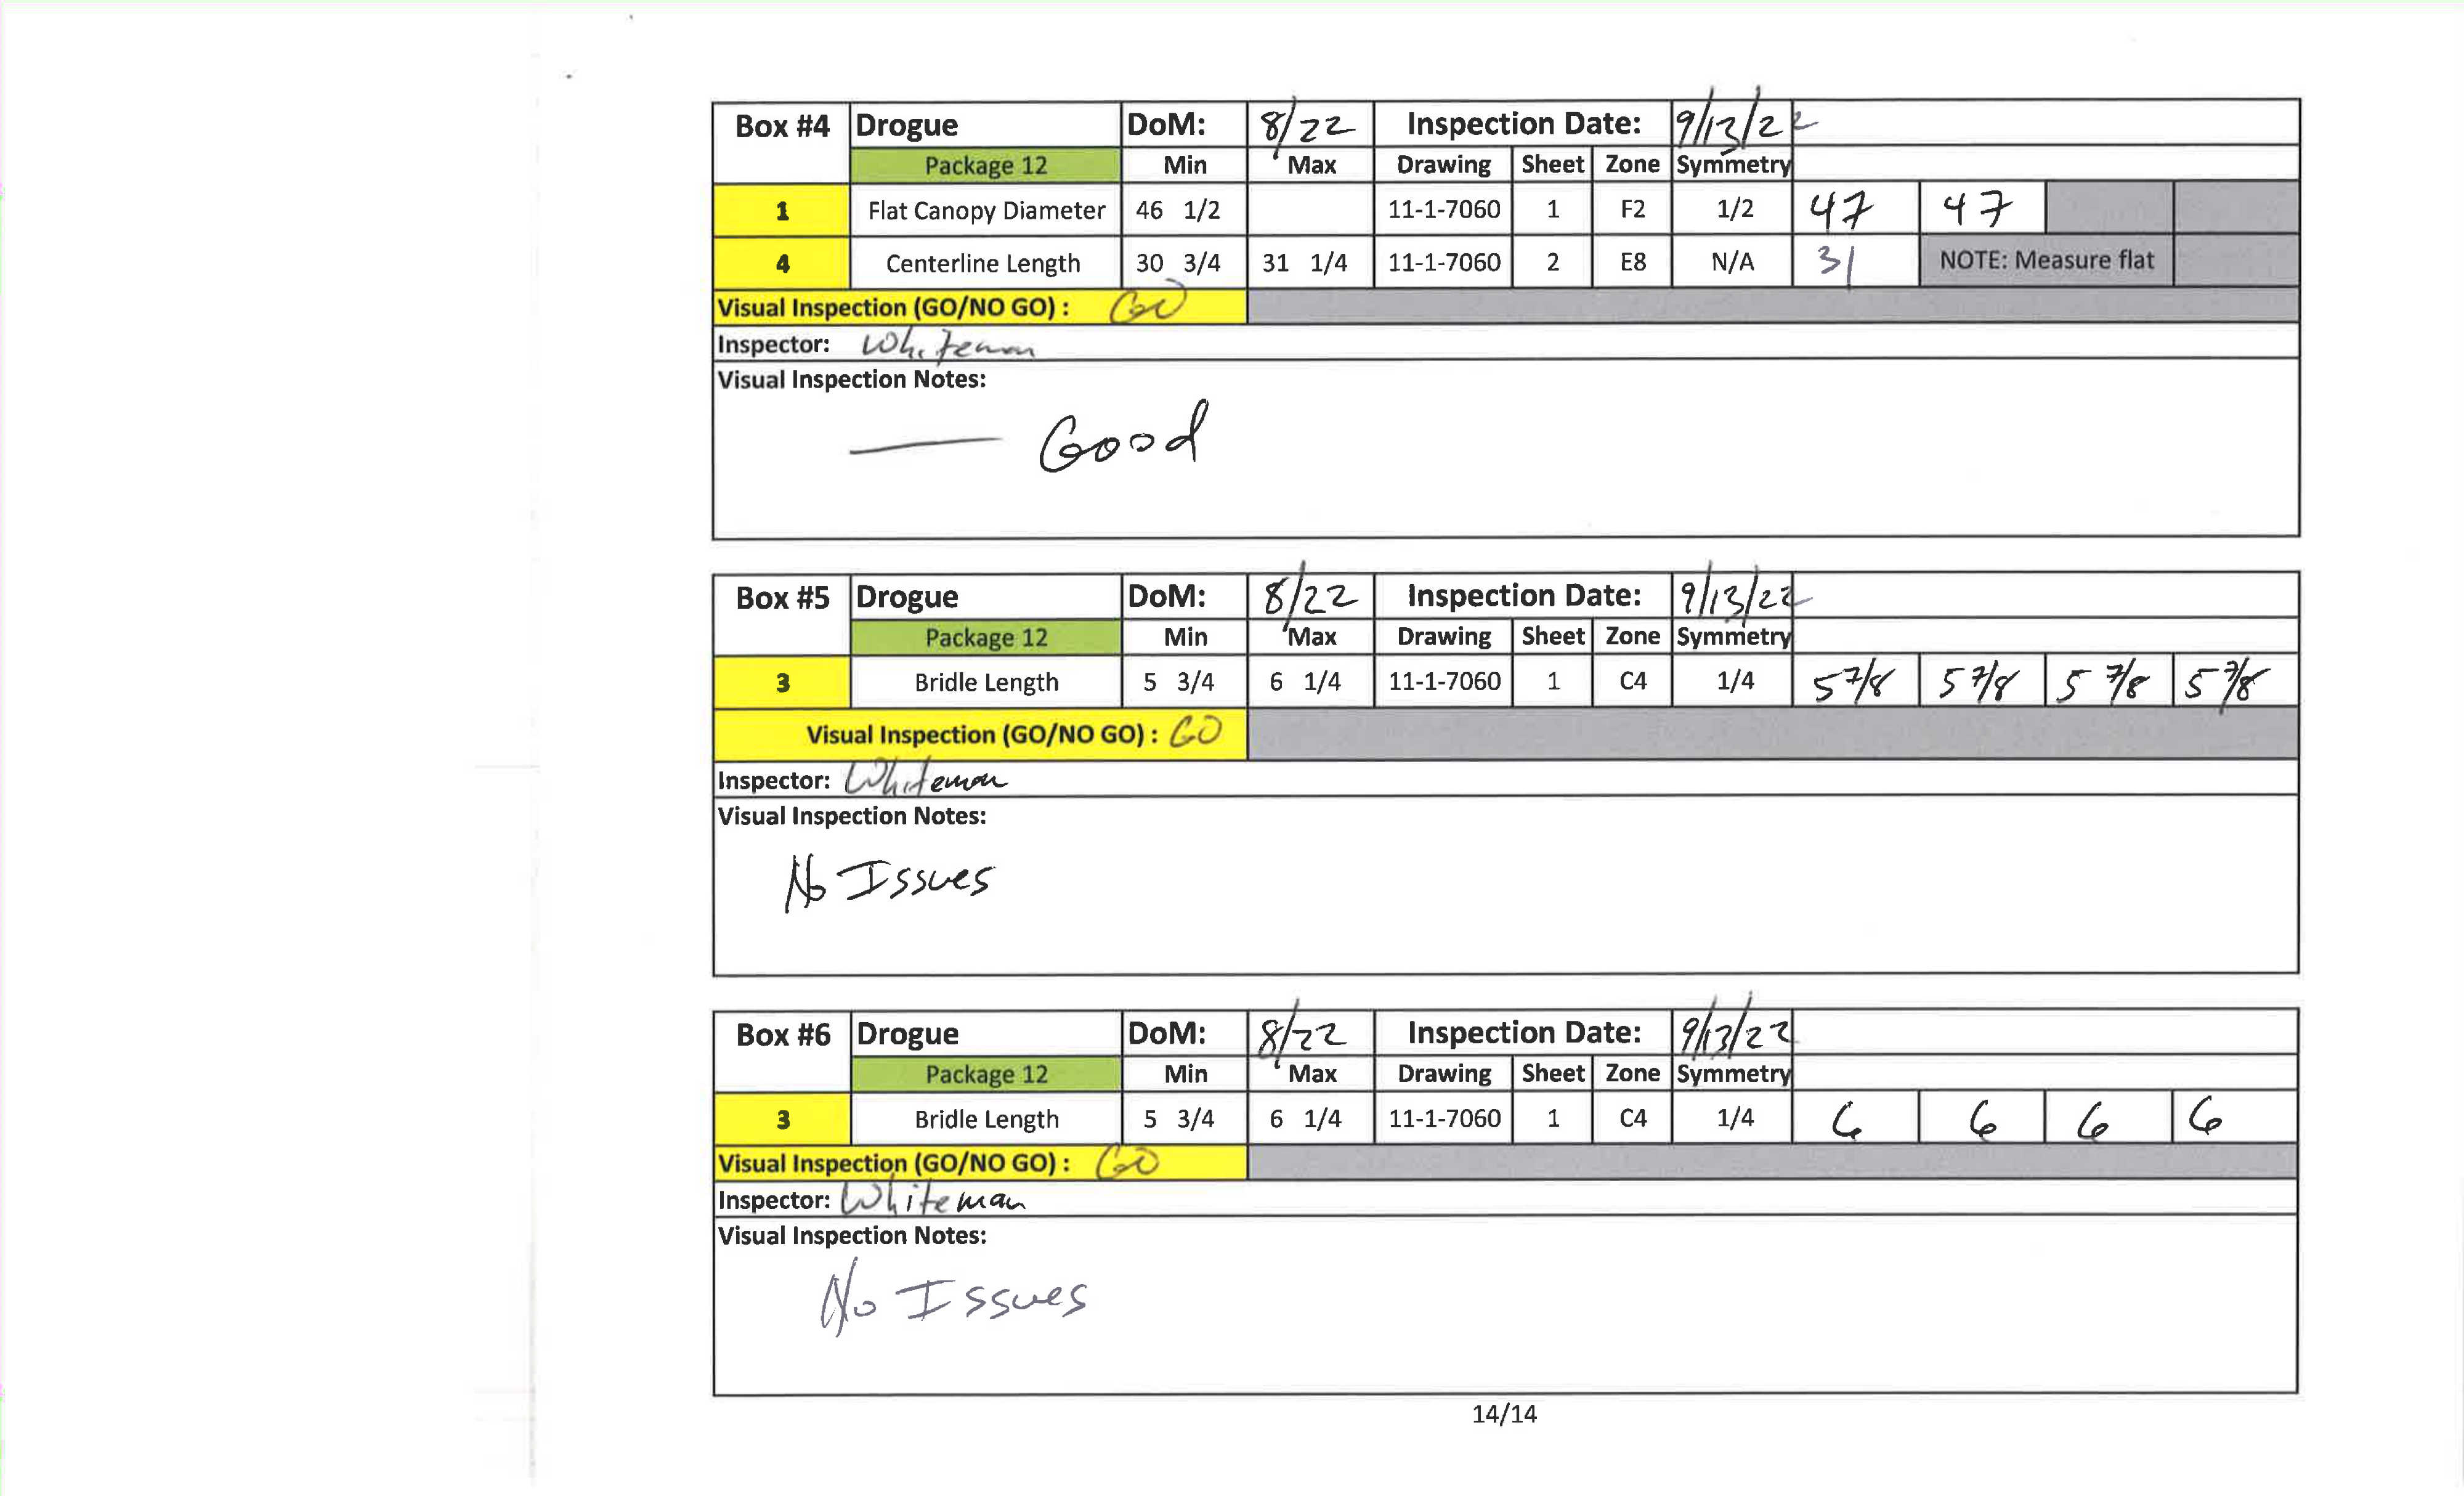 Box #4 Drogue DoM: 8/22 Inspection Date: 9/13/22
Package 12 Min Max Drawing Sheet Zone Symmetry
1 Flat Canopy Diameter 46 1/2 11-1-7060 1 F2 1/2 47 47
4 Centerline Length 30 3/4 31 1/4 11-1-7060 2 E8 N/A 31 NOTE: Measure flat
Visual Inspection (GO/NO GO) : GO
Inspector: Whiteman
Visual Inspection Notes:
— Good
Box #5 Drogue DoM: 8/22 Inspection Date: 9/13/22
Package 12 Min Max Drawing Sheet Zone Symmetry
3 Bridle Length 5 3/4 6 1/4 11-1-7060 1 C4 1/4 5 7/8 5 7/8 5 7/8 5 7/8
Visual Inspection (GO/NO GO) : GO
Inspector: Whiteman
Visual Inspection Notes:
No Issues
Box #6 Drogue DoM: 8/22 Inspection Date: 9/13/22
Package 12 Min Max Drawing Sheet Zone Symmetry
3 Bridle Length 5 3/4 6 1/4 11-1-7060 1 C4 1/4 6 6 6 6
Visual Inspection (GO/NO GO) : GO
Inspector: Whiteman
Visual Inspection Notes:
No Issues
14/14